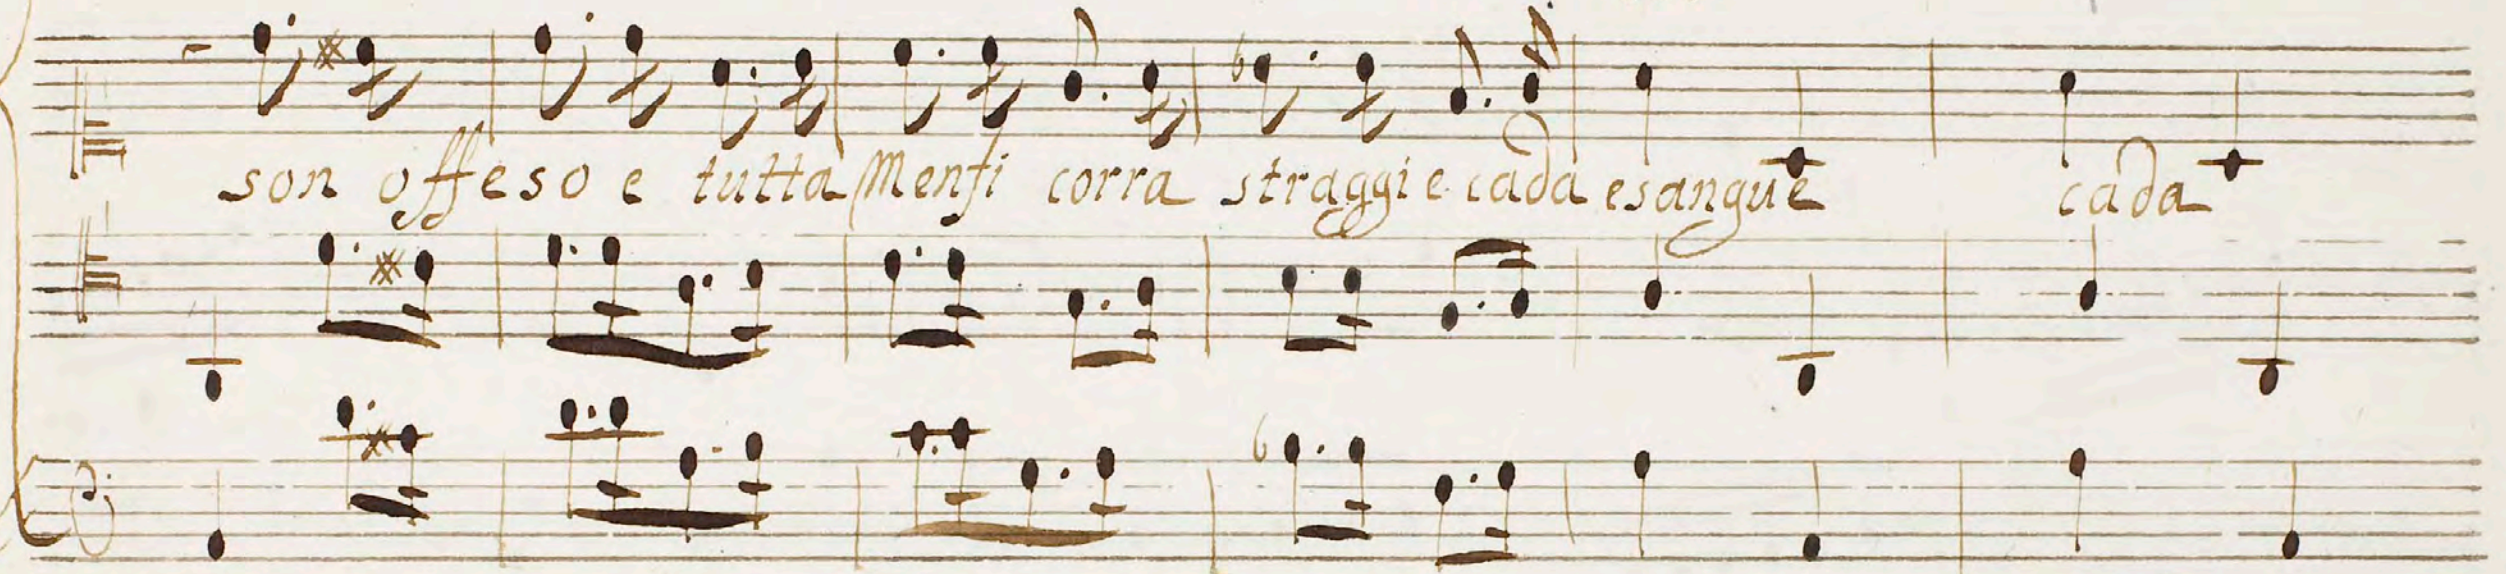 son offeso e tutta Menfi corra straggi e cada esangue cada